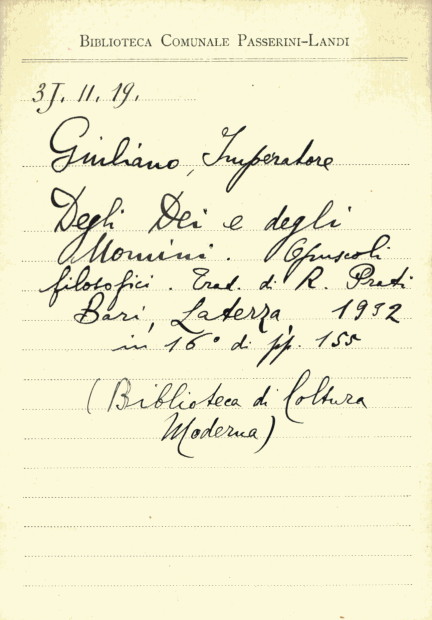 BIBLIOTECA COMUNALE PASSERINI-LANDI
3J. 11. 19.
Giuliano, Imperatore
Degli Dei e degli
Uomini. Opuscoli
filosofici. Trad. di R. Prati
Bari, Laterza, 1932
in 16° di pp. 155
(Biblioteca di Coltura
Moderna)